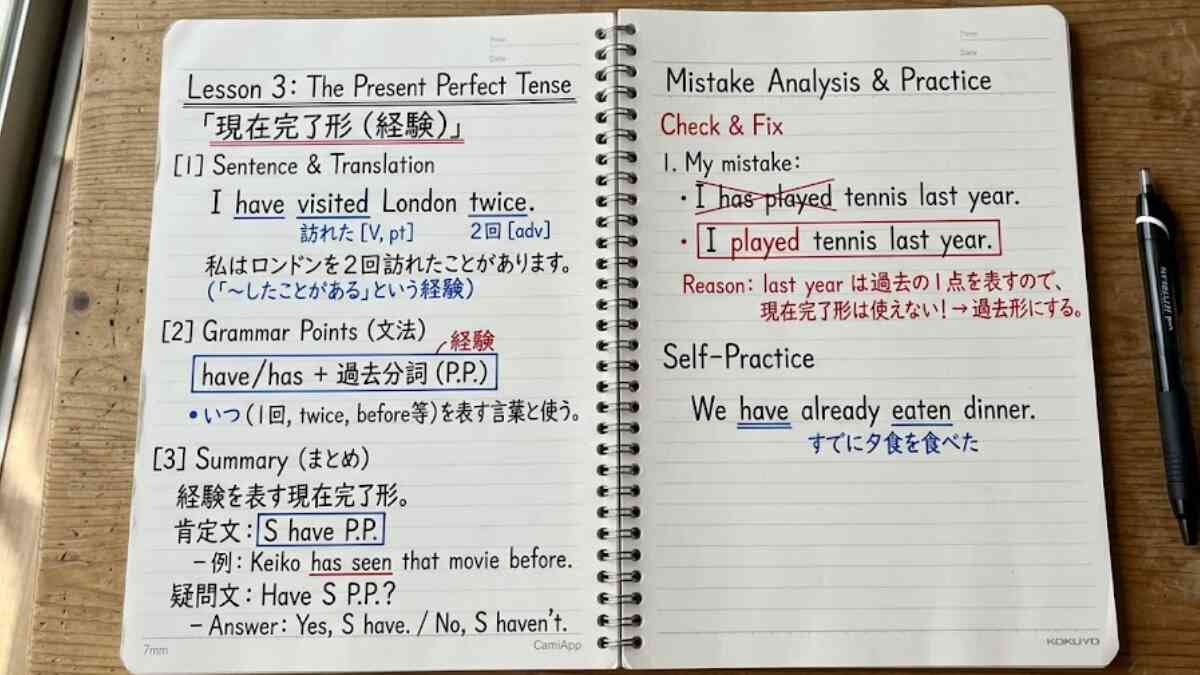 Lesson 3: The Present Perfect Tense
「現在完了形(経験)」
[1] Sentence & Translation
I have visited London twice.
訪れた [V, pt] 2回 [adv]
私はロンドンを2回訪れたことがあります。
(「〜したことがある」という経験)
[2] Grammar Points (文法)
経験
have/has + 過去分詞 (P.P.)
• いつ (1回, twice, before等) を表す言葉と使う。
[3] Summary (まとめ)
経験を表す現在完了形。
肯定文: S have P.P.
– 例: Keiko has seen that movie before.
疑問文: Have S P.P.?
– Answer: Yes, S have. / No, S haven't.
7mm CamiApp
Date
Mistake Analysis & Practice
Check & Fix
1. My mistake:
• I has played tennis last year.
• I played tennis last year.
Reason: last year は過去の1点を表すので、
現在完了形は使えない! → 過去形にする。
Self-Practice
We have already eaten dinner.
すでに夕食を食べた
KOKUYO